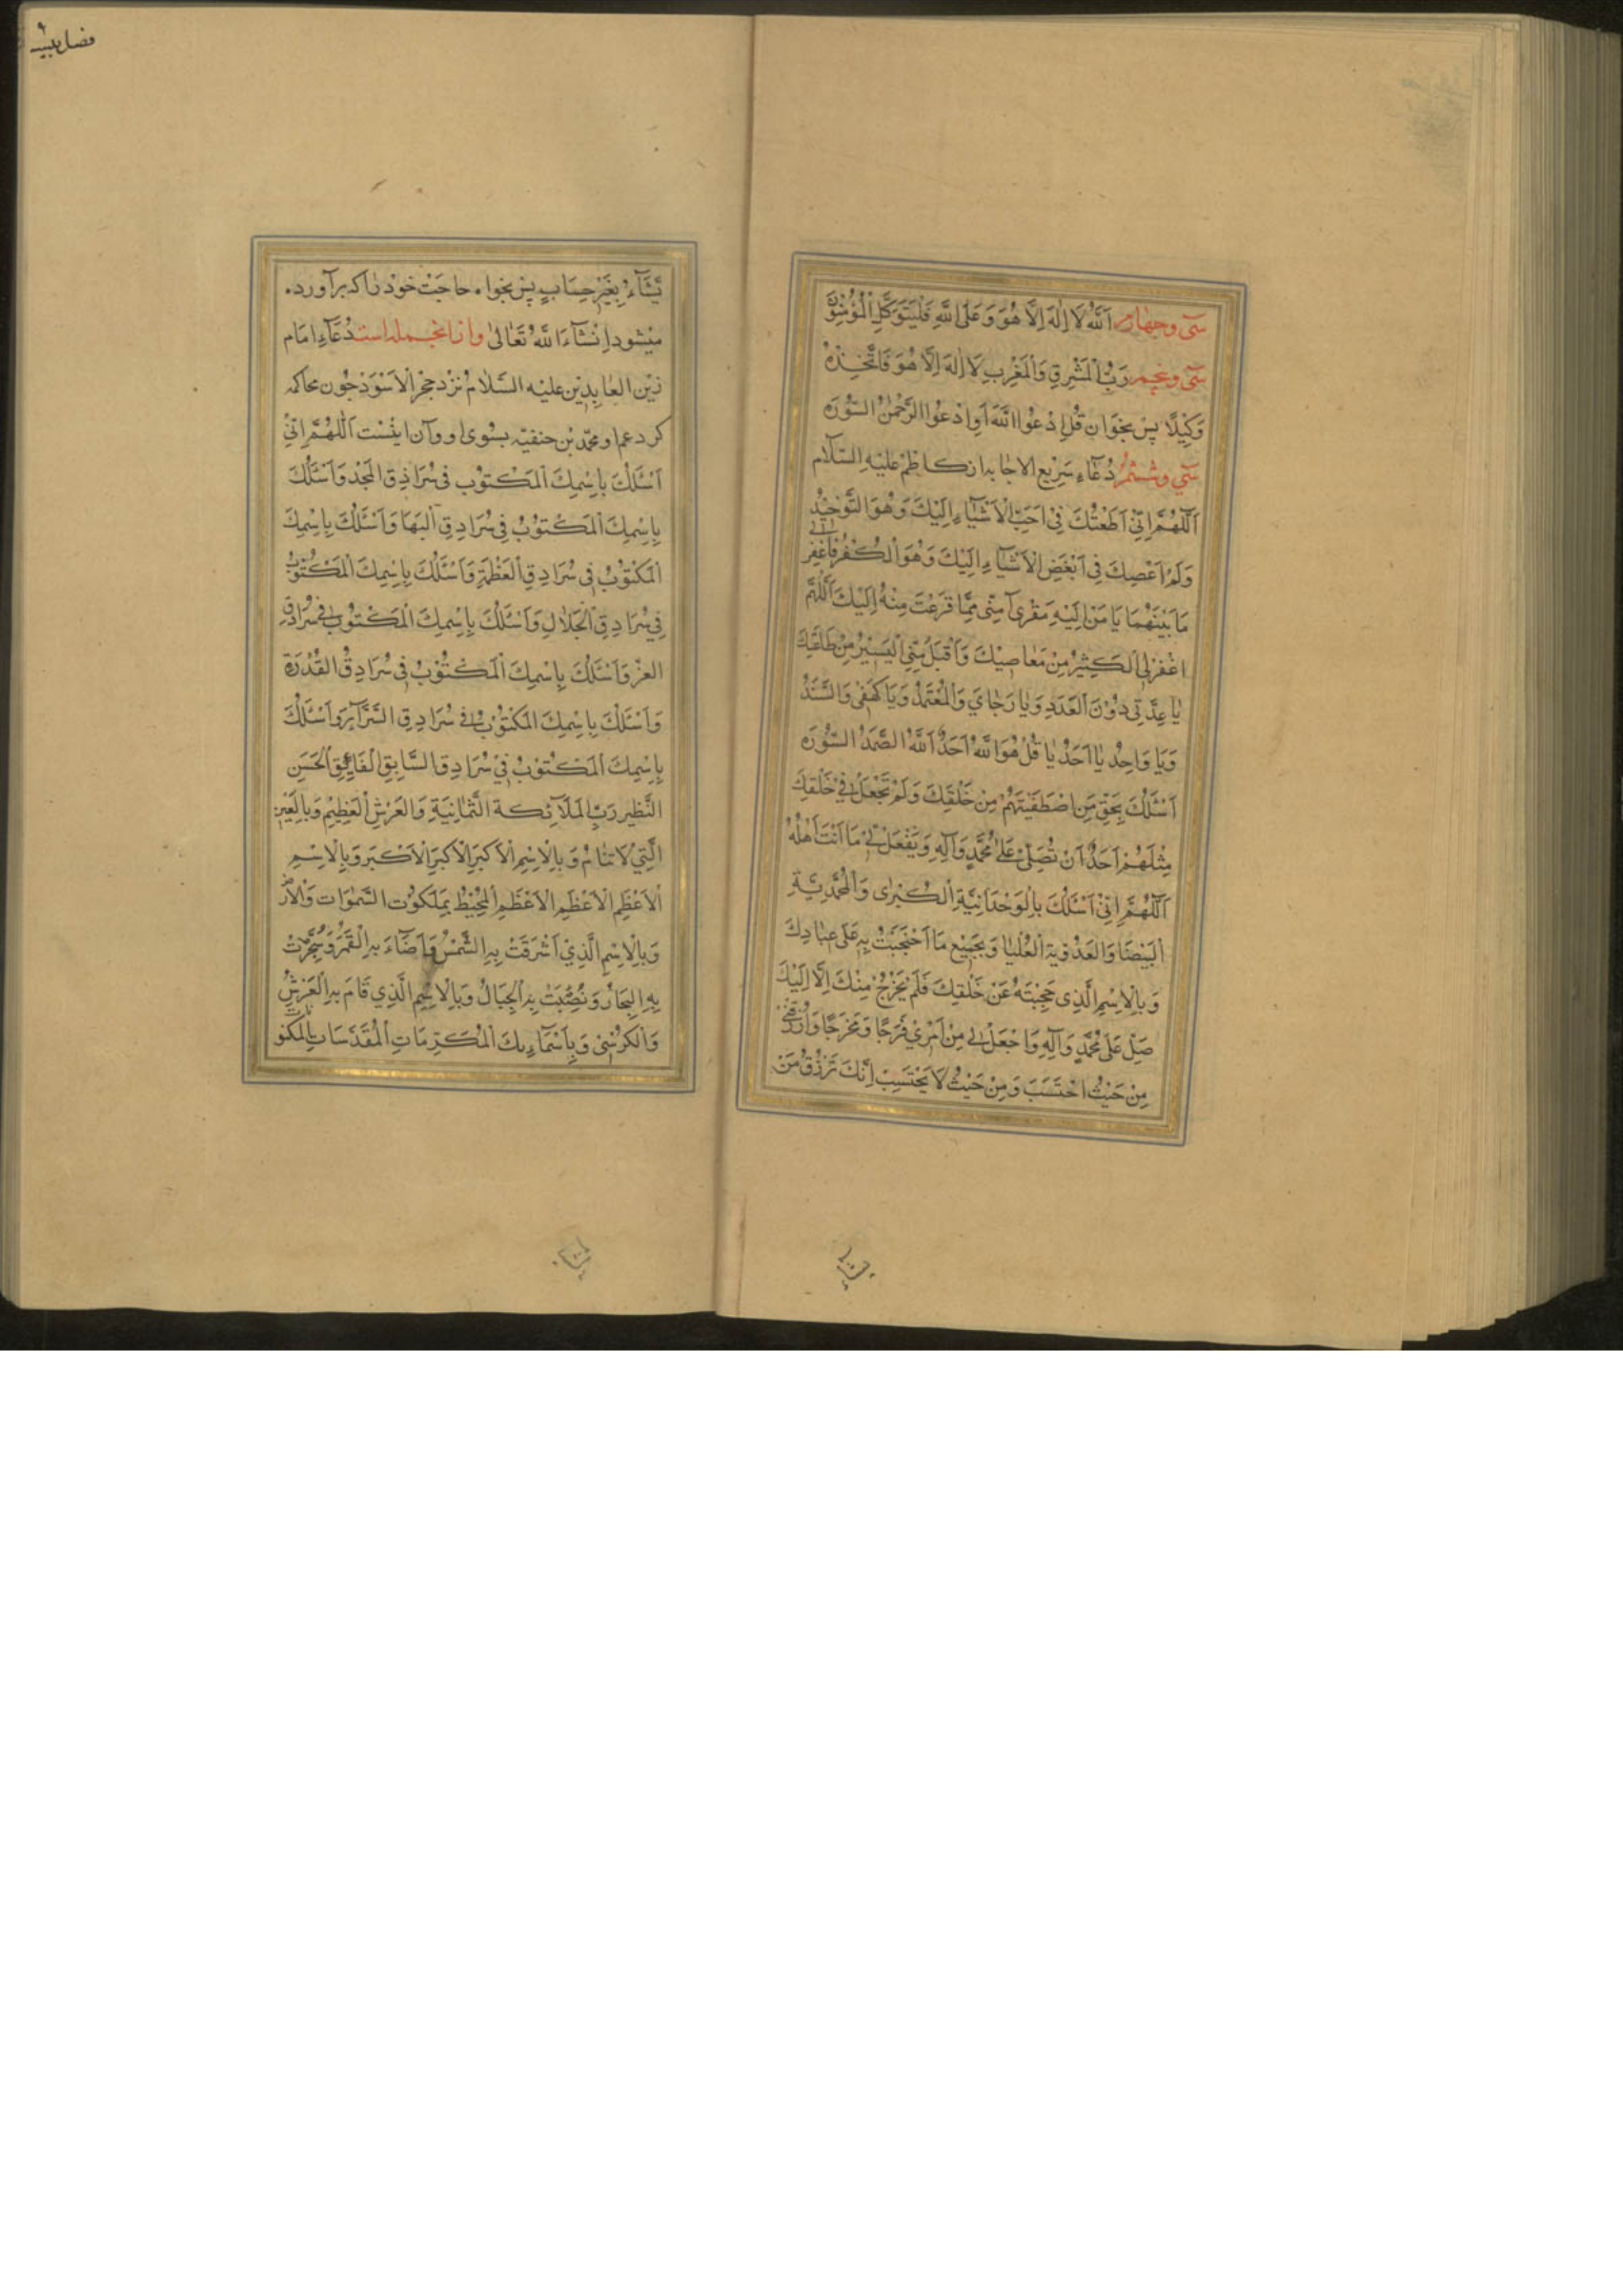 سی و چهارم اَللّٰهُ لَا اِلٰهَ اِلَّا هُوَ وَ عَلَی اللّٰهِ فَلْیَتَوَکَّلِ الْمُؤْمِنُوْنَ
سی و پنجم رَبُّ الْمَشْرِقِ وَالْمَغْرِبِ لَا اِلٰهَ اِلَّا هُوَ فَاتَّخِذْهُ
وَکِیْلًا پس بخوان قُلِ ادْعُوا اللّٰهَ اَوِ ادْعُوا الرَّحْمٰنَ السّوره
سی و ششم دُعَاءِ سَرِیْعِ الاجابه از کاظِمْ عَلَیْهِ السَّلَام
اَللّٰهُمَّ اِنِّیْ اَطَعْتُكَ فِیْ اَحَبِّ الْاَشْیَاءِ اِلَیْكَ وَهُوَ التَّوْحِیْدِ
وَلَمْ اَعْصِكَ فِی اَبْغَضِ الْاَشْیَاءِ اِلَیْكَ وَهُوَ الْكُفْرُ فَاغْفِرْ لی
مَا بَیْنَهُمَا یَا مَنْ اِلَیْهِ مَفَرّی آمِنّی مِمَّا فَزِعْتُ مِنْهُ اِلَیْكَ اَللّٰهُمَّ
اغْفِرْلِی الْكَثِیْرَ مِنْ مَعَاصِیْكَ وَ اَقْبَلْ مِنِّی الْیَسِیْرَ مِنْ طَاعَتِكَ
یَا عِدَّتِی دُوْنَ الْعَدَدِ وَ یَا رَجَایَ وَ الْمُعْتَمَدُ وَ یَا كَهْفِیْ وَ السَّنَدُ
وَ یَا وَاحِدُ یَا اَحَدُ یَا قُلْ هُوَ اللّٰهُ اَحَدٌ اَللّٰهُ الصَّمَدُ السّوره
اَسْئَلُكَ بِحَقِّ مَنِ اصْطَفَیْتَهُمْ مِنْ خَلْقِكَ وَلَمْ تَجْعَلْ فِیْ خَلْقِكَ
مِثْلَهُمْ اَحَدٌ اَنْ تُصَلِّیَ عَلٰی مُحَمَّدٍ وَآلِهِ وَتَفْعَلَ بِیْ مَا اَنْتَ اَهْلُهُ
اَللّٰهُمَّ اِنِّیْ اَسْئَلُكَ بِالْوَحْدَانِیَّةِ الْكُبْرٰی وَ الْمُحَمَّدِیَّةِ
الْبَیْضَا وَ الْعَلَوِیَّةِ الْعُلْیَا وَ بِجَمِیْعِ مَا احْتَجَبْتَ بِهِ عَلٰی عِبَادِكَ
وَ بِالْاِسْمِ الَّذِی حَجَبْتَهُ عَنْ خَلْقِكَ فَلَمْ یَخْرُجْ مِنْكَ اِلَّا اِلَیْكَ
صَلِّ عَلٰی مُحَمَّدٍ وَآلِهِ وَ اجْعَلْ لِی مِنْ اَمْرِیْ فَرَجًا وَ مَخْرَجًا وَارْزُقْنِیْ
مِنْ حَیْثُ احْتَسِبُ وَ مِنْ حَیْثُ لَا یَحْتَسِبُ اِنَّكَ تَرْزُقُ مَنْ
یَّشَآءُ بِغَیْرِ حِسَابٍ پس بخواه حاجت خود را که برآورده
میشود اِنْشَاءَ اللّٰهُ تَعَالٰی و از انجمله است دُعَاءِ امام
زین العابدین علیه السَّلَام نزد حجر الاسود چون محاکمه
کرد عم او محمّد بن حنفیّه بسوی او و آن اینست اَللّٰهُمَّ اِنِّیْ
اَسْئَلُكَ بِاسْمِكَ الْمَكْتُوْبِ فِی سُرَادِقِ الْمَجْدِ وَ اَسْئَلُكَ
بِاسْمِكَ الْمَكْتُوْبِ فِی سُرَادِقِ الْبَهَا وَ اَسْئَلُكَ بِاسْمِكَ
الْمَكْتُوْبِ فِی سُرَادِقِ الْعَظَمَةِ وَ اَسْئَلُكَ بِاسْمِكَ الْمَكْتُوْبِ
فِی سُرَادِقِ الْجَلَالِ وَ اَسْئَلُكَ بِاسْمِكَ الْمَكْتُوْبِ فِی سُرَادِقِ
العِزِّ وَ اَسْئَلُكَ بِاسْمِكَ الْمَكْتُوْبِ فِی سُرَادِقِ الْقُدْرَةِ
وَ اَسْئَلُكَ بِاسْمِكَ الْمَكْتُوْبِ فِی سُرَادِقِ السَّرَآئِرِ وَ اَسْئَلُكَ
بِاسْمِكَ الْمَكْتُوْبِ فِی سُرَادِقِ السَّابِقِ الْفَایِقِ الْحَسَنِ
النَّظِیرِ رَبِّ الْمَلَآئِكَةِ الثَّمَانِیَةِ وَ الْعَرْشِ الْعَظِیْمِ وَ بِالْعَیْنِ
الَّتِیْ لَا تَنَامُ وَ بِالْاِسْمِ الْاَكْبَرِ الْاَكْبَرِ الْاَكْبَرِ وَ بِالْاِسْمِ
الْاَعْظَمِ الْاَعْظَمِ الْاَعْظَمِ الْمُحِیْطِ بِمَلَكُوْتِ السَّمٰوَاتِ وَ الْاَرْضِ
وَ بِالْاِسْمِ الَّذِیْ اَشْرَقَتْ بِهِ الشَّمْسُ وَ اَضَآءَ بِهِ الْقَمَرُ وَ سُجِّرَتْ
بِهِ الْبِحَارُ وَ نُصِبَتْ بِهِ الْجِبَالُ وَ بِالْاِسْمِ الَّذِیْ قَامَ بِهِ الْعَرْشُ
وَ الْكُرْسِیُّ وَ بِاَسْمَآءِكَ الْمُكَرَّمَاتِ الْمُقَدَّسَاتِ الْمَكْنُو